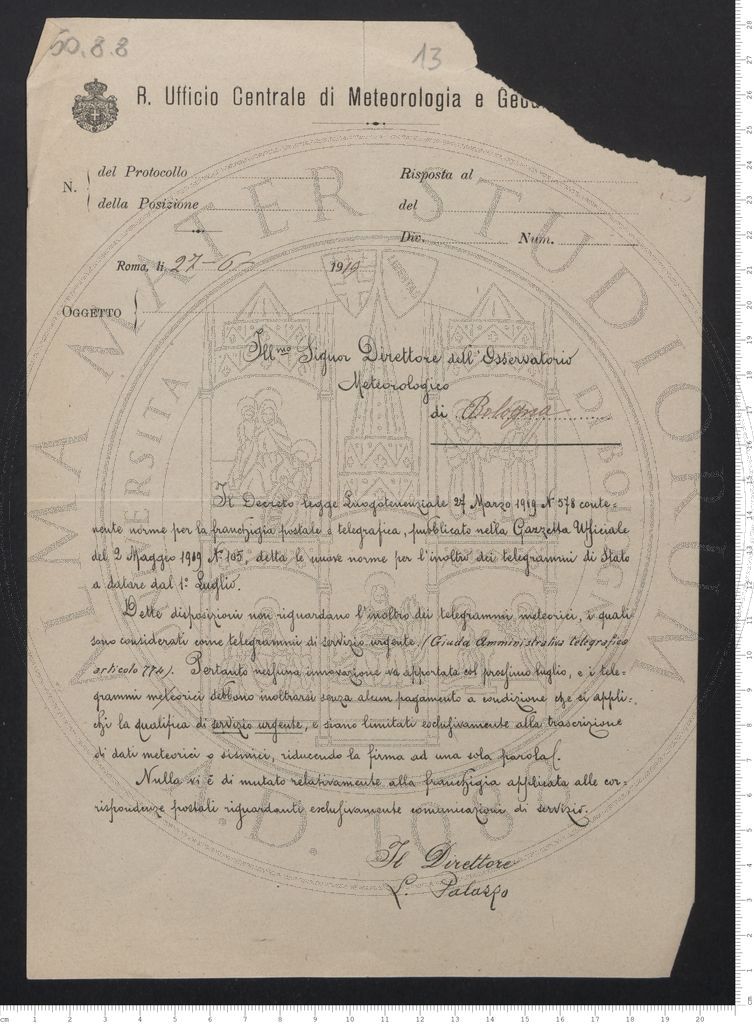 50.8.8
13
R. Ufficio Centrale di Meteorologia e Geod
N. del Protocollo
della Posizione
Risposta al
del
Div. Num.
Roma, li 27-6 1919
OGGETTO
Ill.mo Signor Direttore dell'Osservatorio
Meteorologico
di Bologna
Il Decreto legge Luogotenenziale 27 Marzo 1919 N° 578 conte=
nente norme per la franchigia postale e telegrafica, pubblicato nella Gazzetta Ufficiale
del 2 Maggio 1919 N° 105, detta le nuove norme per l'inoltro dei telegrammi di Stato
a datare dal 1° Luglio.
Dette disposizioni non riguardano l'inoltro dei telegrammi meteorici, i quali
sono considerati come telegrammi di servizio urgente. (Guida Amministrativa telegrafica
articolo 774). Pertanto nessuna innovazione va apportata col prossimo luglio, e i tele=
grammi meteorici debbono inoltrarsi senza alcun pagamento a condizione che si appli=
chi la qualifica di servizio urgente, e siano limitati esclusivamente alla trascrizione
di dati meteorici o sismici, riducendo la firma ad una sola parola.
Nulla vi è di mutato relativamente alla franchigia applicata alle cor=
rispondenze postali riguardanti esclusivamente comunicazioni di servizio.
Il Direttore
L. Palazzo
ALMA MATER STUDIORUM
A.D. 1088